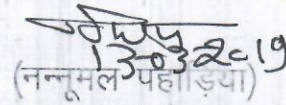 13-03-2019
(नन्नूमल पहाड़िया)